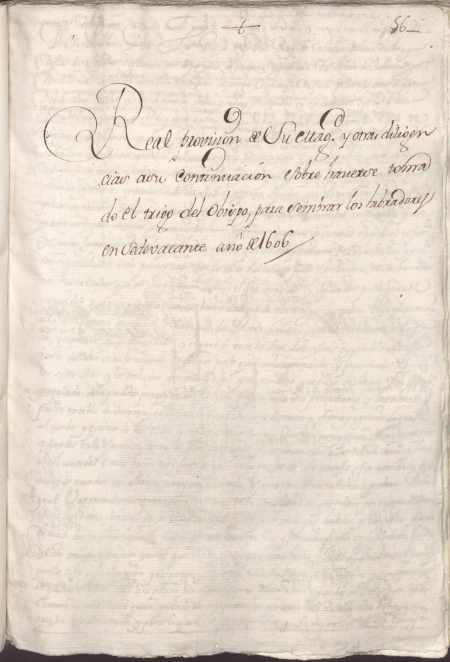 56
Real provision de Su Magd. y otras diligen
cias a su continuación sobre haverse toma
do el trigo del Obispo, para sembrar los labradores
en Sedevacante año de 1606